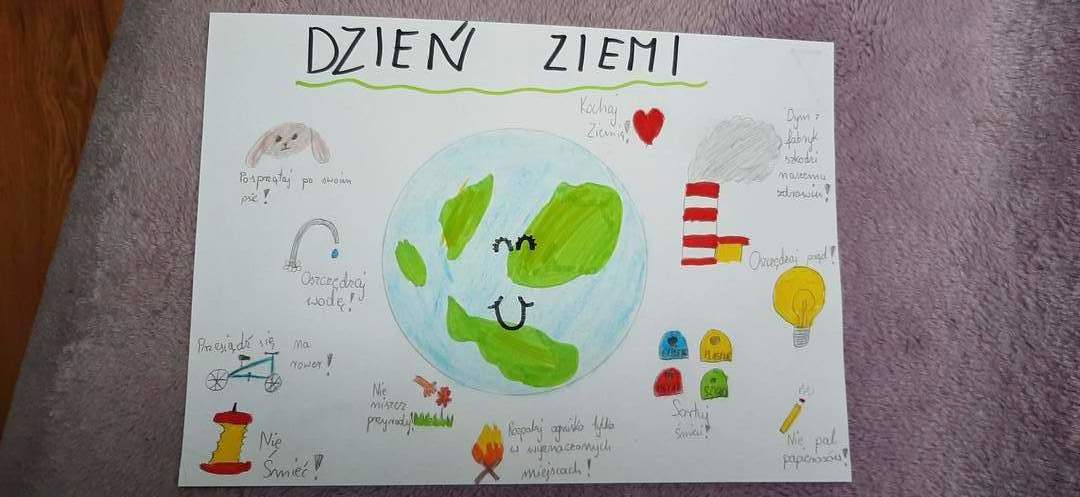 DZIEŃ ZIEMI
Kochaj
Ziemię!
Dym z
fabryk
szkodzi
naszemu
zdrowiu!
Posprzątaj po swoim
psie!
Oszczędzaj
wodę!
Oszczędzaj prąd!
Przesiądź się na
rower!
PAPIER
PLASTIK
SZKŁO
Sortuj
śmieci!
Nie
niszcz
przyrody!
Rozpalaj ognisko tylko
w wyznaczonych
miejscach!
Nie
Śmieć!
Nie pal
papierosów!